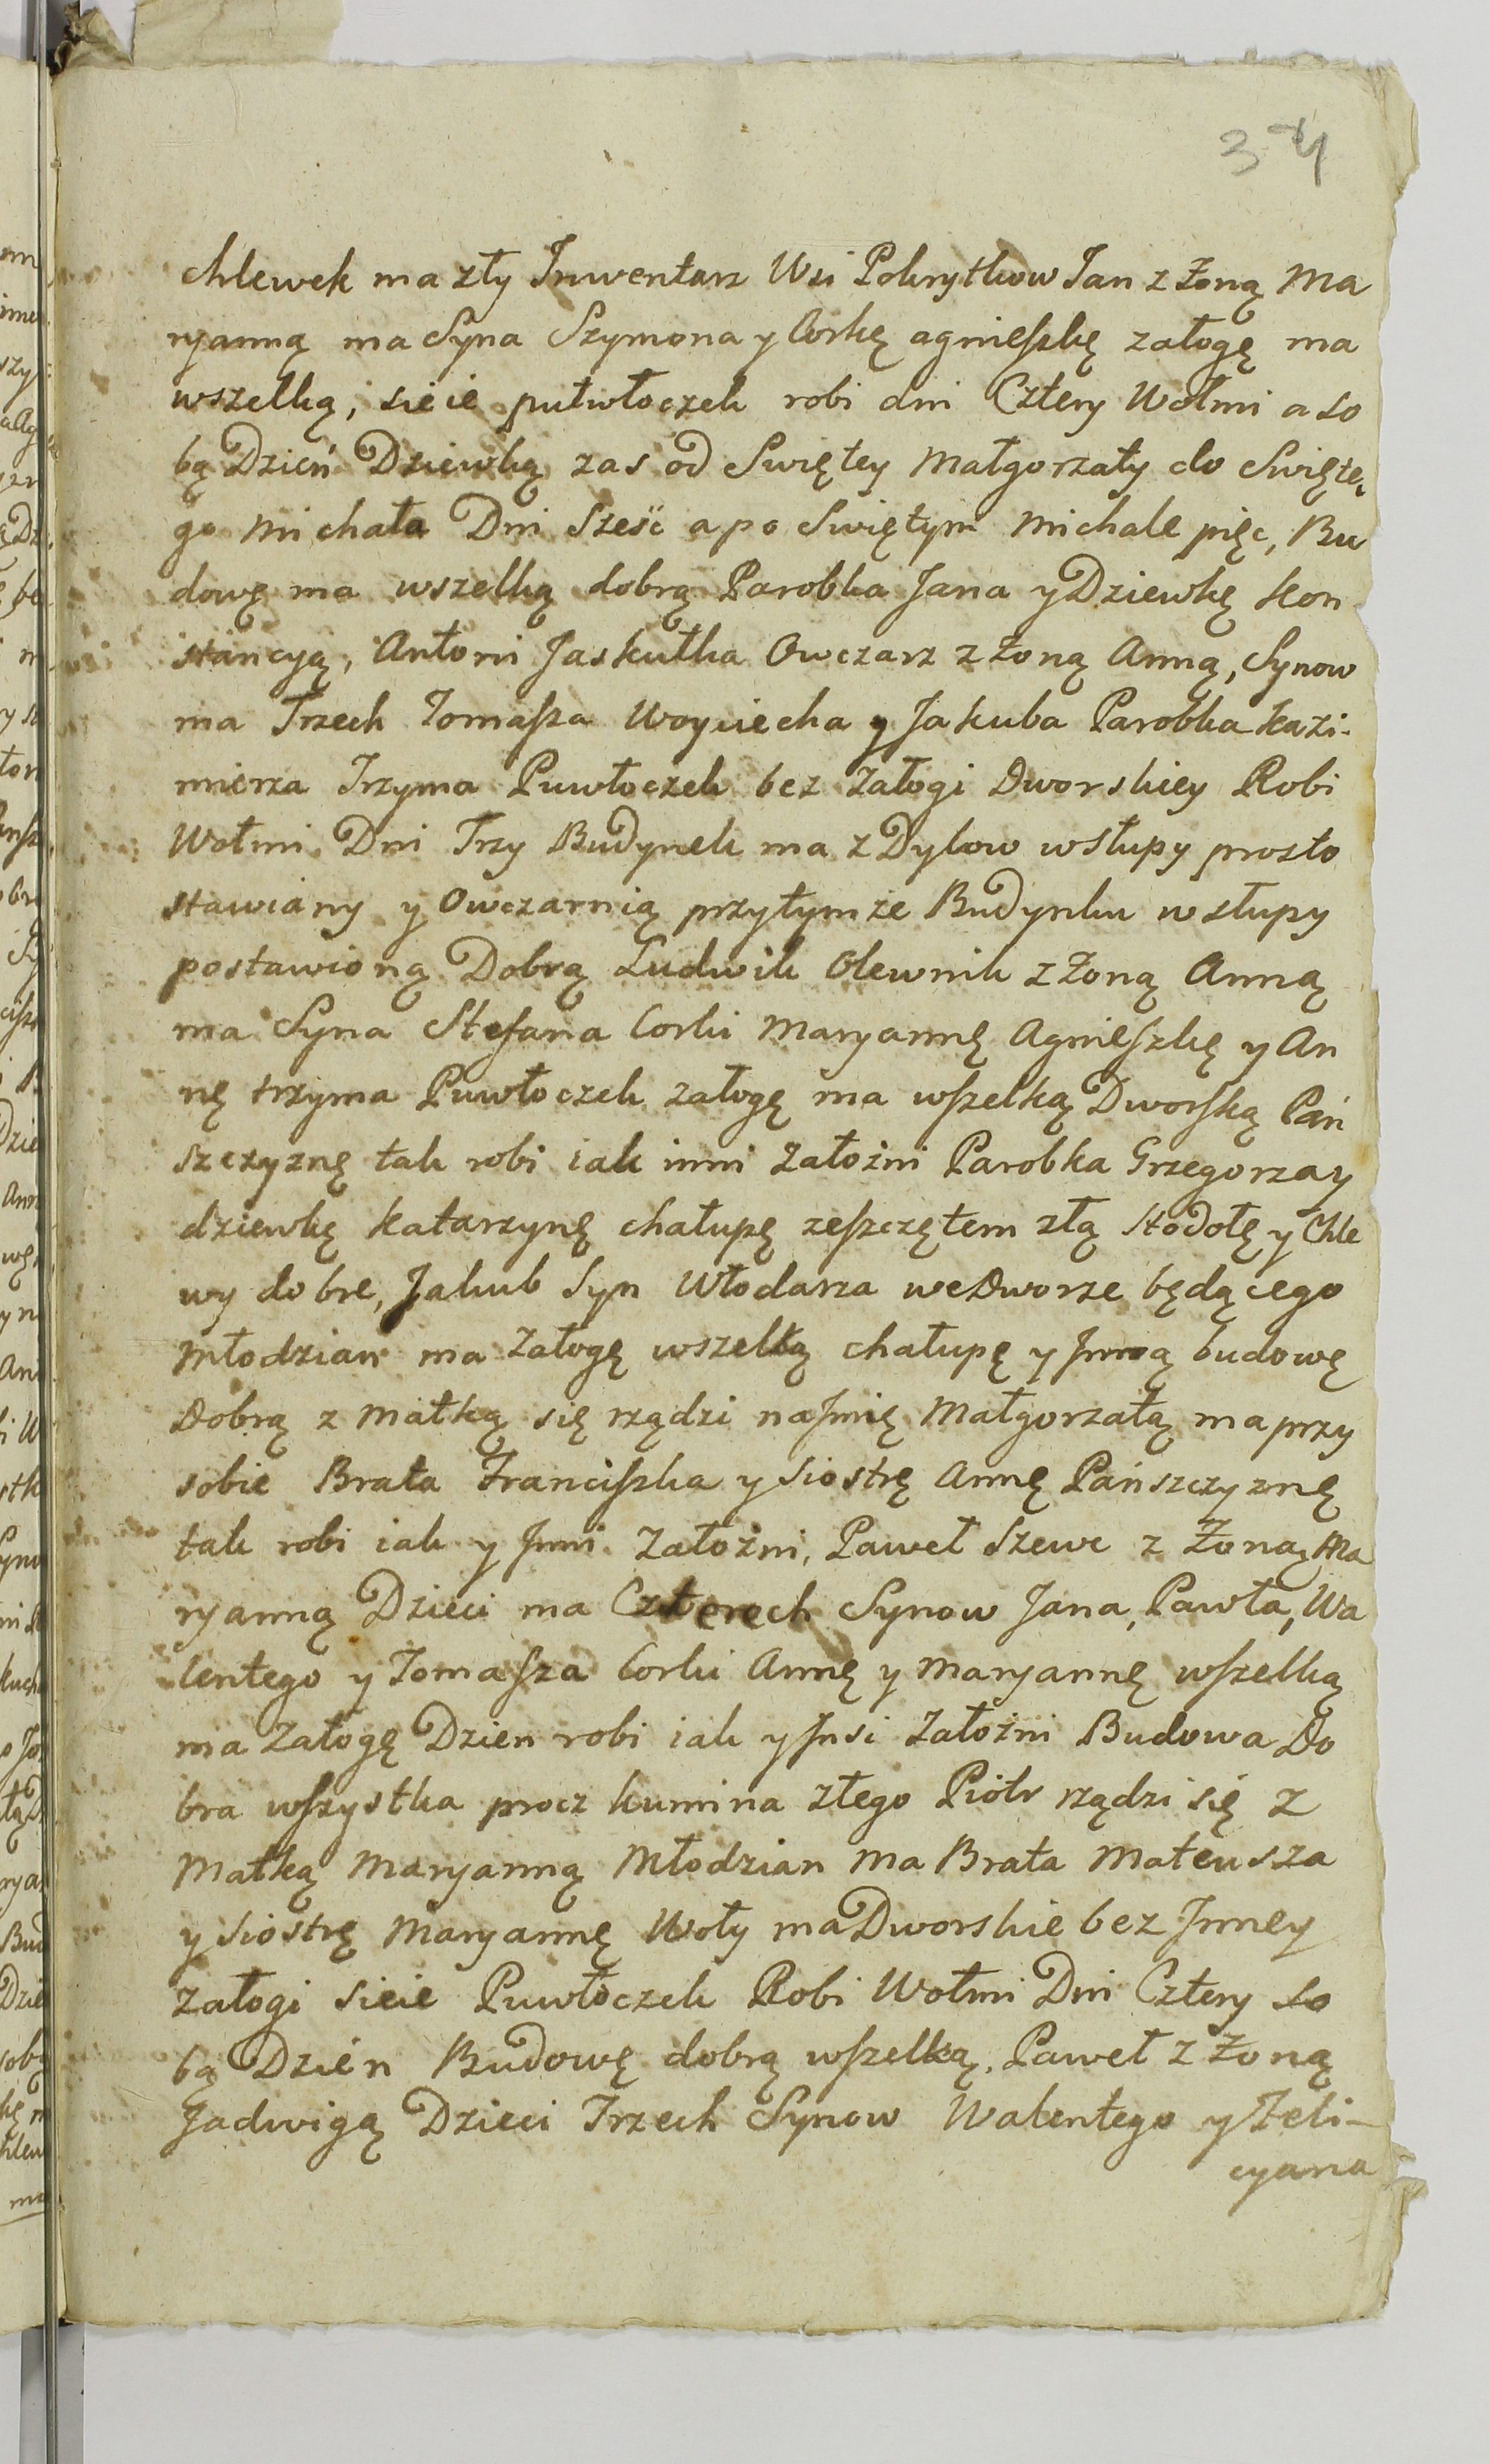 34
chlewek ma zły Inwentarz Wsi Pokrytkow Jan z Żoną Ma
ryanną ma Syna Szymona y Corkę agnieszkę załogę ma
wszelką, sieie pułwłoczek robi dni Cztery Wołmi a so
bą Dzień Dziewką zas od Swiętey Małgorzaty do Swięte,
go Michała Dni Sześć a po Swiętym Michale pięc, Bu
dowę ma wszelką dobrą Parobka Jana y Dziewkę Kon
stancyą, Antoni Jaskułka Owczarz z Żoną Anną, Synow
ma Trzech Tomasza Woyciecha y Jakuba Parobka Kazi-
mierza Trzyma Puwłoczek bez Załogi Dworskiey Robi
Wołmi Dni Trzy Budynek ma z Dylow w słupy prosto
stawiany y Owczarnią przytymże Budynku w słupy
postawioną Dobrą Ludwik Olewnik z Żoną Anną
ma Syna Stefana Corki Maryannę Agnieszkę y An
nę trzyma Puwłoczek załogę ma wszelką Dworską Pań
szczyznę tak robi iak inni Załoźni Parobka Grzegorza y
dziewkę Katarzynę chałupę zeszczętem złą stodołę y Chle
wy dobre, Jakub Syn Włodarza we Dworze będącego
Młodzian ma Załogę wszelką chałupę y Inną budowę
Dobrą z Matką się rządzi naImię Małgorzatą ma przy
sobie Brata Franciszka y Siostrę Annę Pańszczyznę
tak robi iak y Inni Załoźni, Paweł Szewc z Żoną Ma
ryanną Dzieci ma Czterech Synow Jana, Pawła, Wa
lentego y Tomasza Corki Annę y Maryannę wszelką
ma Załogę Dzien robi iak y Insi Załoźni Budowa Do
bra wszystka procz kumina złego Piotr rządzi się z
Matką Maryanną Młodzian ma Brata Mateusza
y Siostrę Maryannę Woły ma Dworskie bez Inney
Załogi sieie Puwłoczek Robi Wołmi Dni Cztery so
bą Dzień Budowę dobrą wszelką, Paweł z Żoną
Jadwigą Dzieci Trzech Synow Walentego y Feli-
cyana